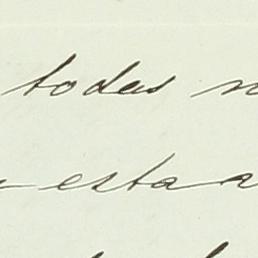 todas
esta a